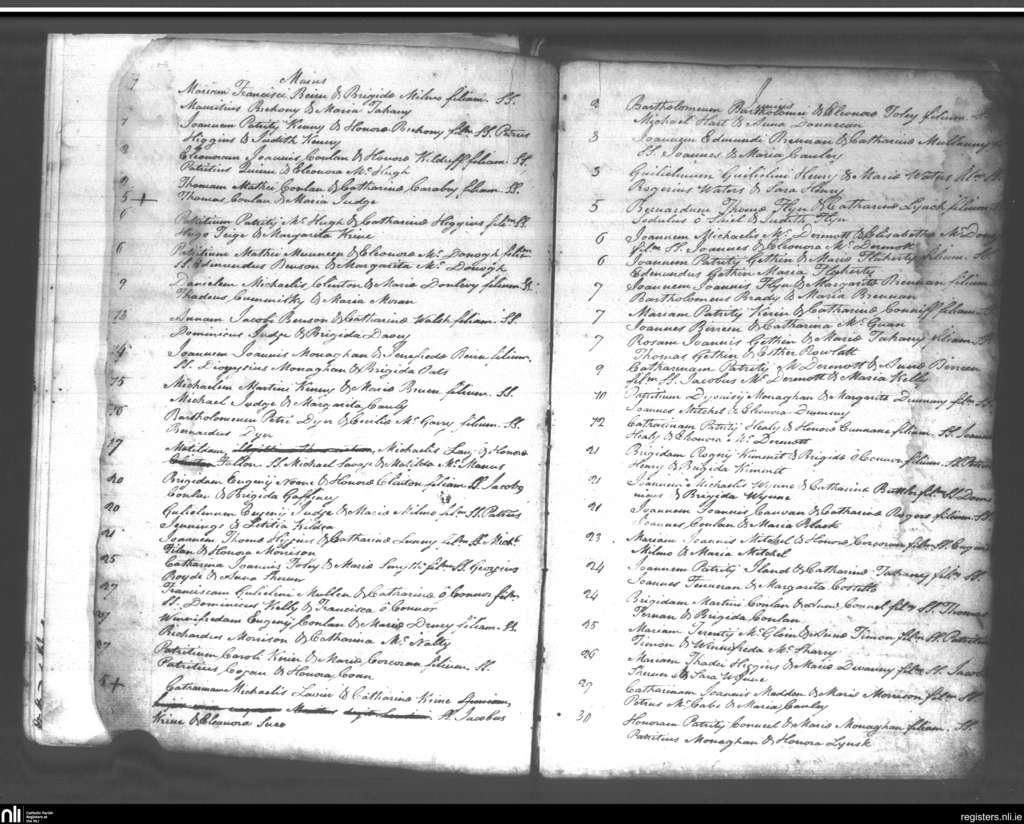 Maius
7 Mariam Francisci Beirn & Brigidæ Milmo filiam. SS.
Mauritius Brehony & Maria Tahany
7 Joannem Patritij Kenny & Honoræ Brehony film SS. Patrus
Higgins & Judith Kenny
8 Eleonoram Joannis Conlan & Honoræ Kilduff filiam. SS.
Patritius Quinn & Eleonora Mc Hugh
9 Thomam Mathei Conlan & Catharinæ filium. SS.
5 + Thomas Conlan & Maria Judge
6 Patritium Patritij Mc Hugh & Catharinæ Higgins film SS.
Hugo Teige & Margarita Krine
6 Patritium Mathei & Eleonoræ Mc Donogh filium
SS. Edmundus Benson & Margarita Mc Donogh
9 Danielem Michaelis Clenton & Mariæ Donlevy filium SS.
Thadeus & Maria Moran
13 Annam Jacobi Benson & Catharinæ Walsh filiam. SS.
Dominicus Judge & Brigida Davey
14 Joannem Joannis Monaghan & Beirn filium,
SS. Dionysius Monaghan & Brigida Oats
15 Michaelem Martini Kenny & Mariæ Bruen filium. SS.
Michael Judge & Margarita Cauly
16 Bartholomeum Petri Dyer & Mc Garry filium. SS.
Bernardus Dyer
17 Matildam Michaelis & Honoræ
Fallon. SS. Michael Savage & Matilda Mc Manus
20 Brigidam Eugenij Noone & Honoræ filiam SS. Jacobus
Conlan & Brigida Gaffney
20 Gulielmum Eugenij Judge & Mariæ Milmo film SS. Patritius
Jennings & Letitia
21 Joannem Thomæ Higgins & Catharinæ filium SS. Michl
& Honora Morrison
25 Catharina Joannis Foley & Mariæ Smyth filiam SS. Georgius
Boyde & Anna
27 Franciscam Gulielmi Mullen & Catharinæ O Connor filiam
SS. Dominicus Kelly & Francisca O Connor
29 Winnifredam Eugenij Conlan & Mariæ Drury filiam. SS.
Richardus Morrison & Catharina Mc Nally
Patritium Caroli Kerin & Mariæ Corcoran filium. SS.
Patritius Cogan & Honora
5 + Catharinam Michaelis Lavin & Catharinæ Krine
SS. Jacobus
Krine & Eleanora
Junius
2 Bartholomeum Bartholomei & Eleonoræ Foley filium. SS.
Michael Hart & Anna
3 Joannem Edmundi Brennan & Catharinæ Mullanny
SS. Joannes & Maria Cauley
3 Guilielmum Guilielmi Henry & Mariæ Waters film SS
Rogerius Waters & Sara Henry
5 Bernardum Thomæ Flyn & Catharinæ Lynch filium
& Judith Flyn
6 Joannem Michaelis Mc Dermott & Elisabethæ Mc
film SS. Joannes & Eleonora Mc Dermott
6 Joannem Patritij Gethin & Mariæ Flaherty filium. SS
Edmundus Gethin Maria Flaherty
7 Joannem Joannis Flyn & Margaritæ Brennan filium
Bartholomeus Brady & Maria Brennan
7 Mariam Patritij Kerin & Catharinæ Conniff filiam
Joannes & Catharina Mc
7 Rosam Joannis Gethin & Mariæ Tahany filiam. SS
Thomas Gethin & Esther Rowlatt
9 Catharinam Patritij Mc Dermott & Annæ
film SS. Jacobus Mc Dermott & Maria Kelly
10 Patritium Dyonisij Monaghan & Margaritæ filium SS
Joannes Mitchel & Elenora
12 Catharinam Patritij Healy & Honoræ Cunnane filiam. SS. Joannes
Healy & Elenora Mc Dermott
21 Brigidam Rogerij Kimmit & Brigidæ O Connor filiam. SS. Petrus
Henry & Brigida Kimmit
21 Joannem Michaelis Wynne & Catharinæ filium SS. Domi
nicus & Brigida Wynne
21 Joannem Joannis & Catharinæ Rogers filium. SS
Joannes Conlan & Maria Black
23 Mariam Joannis Mitchel & Honoræ Corcoran filiam SS. Eugen
Milmo & Maria Mitchel
24 Joannem Patritij & Catharinæ Tahany film SS
Joannes & Margarita Costello
24 Brigidam Martini Conlan & Annæ Connel film SS. Thomas
& Brigida Conlan
25 Mariam Terentij Mc Gloin & Annæ Timon filiam SS. Patritius
Timon & Winnifreda Mc Sharry
26 Mariam Thadei Higgins & Mariæ filiam SS. Jacobus
& Sara Wynne
29 Catharinam Joannis Madden & Mariæ Morrison filiam SS
Petrus Mc Cabe & Maria Cauley
30 Honoram Patritij Connel & Mariæ Monaghan filiam. SS.
Patritius Monaghan & Honora Lynsk
nli Catholic Parish
Registers at
the NLI
registers.nli.ie